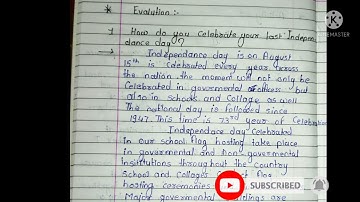 * Evalution :-
1 How do you celebrate your last Indepen
dance day?
→ Independance day is on August
15th is celebrated every year across
the nation. the moment will not only be
Celebrated in govermental offices. but
also in schools and collage as well
The national day is followed since
1947. This time is 73rd year of Celebration
Independace day celebrated
In our school flag hosting take place
in govermental and non-govermental
Institutions throughout the country
School and Colleges flag
hosting ceremonies
Major govermental are
KINEMASTER
SUBSCRIBED